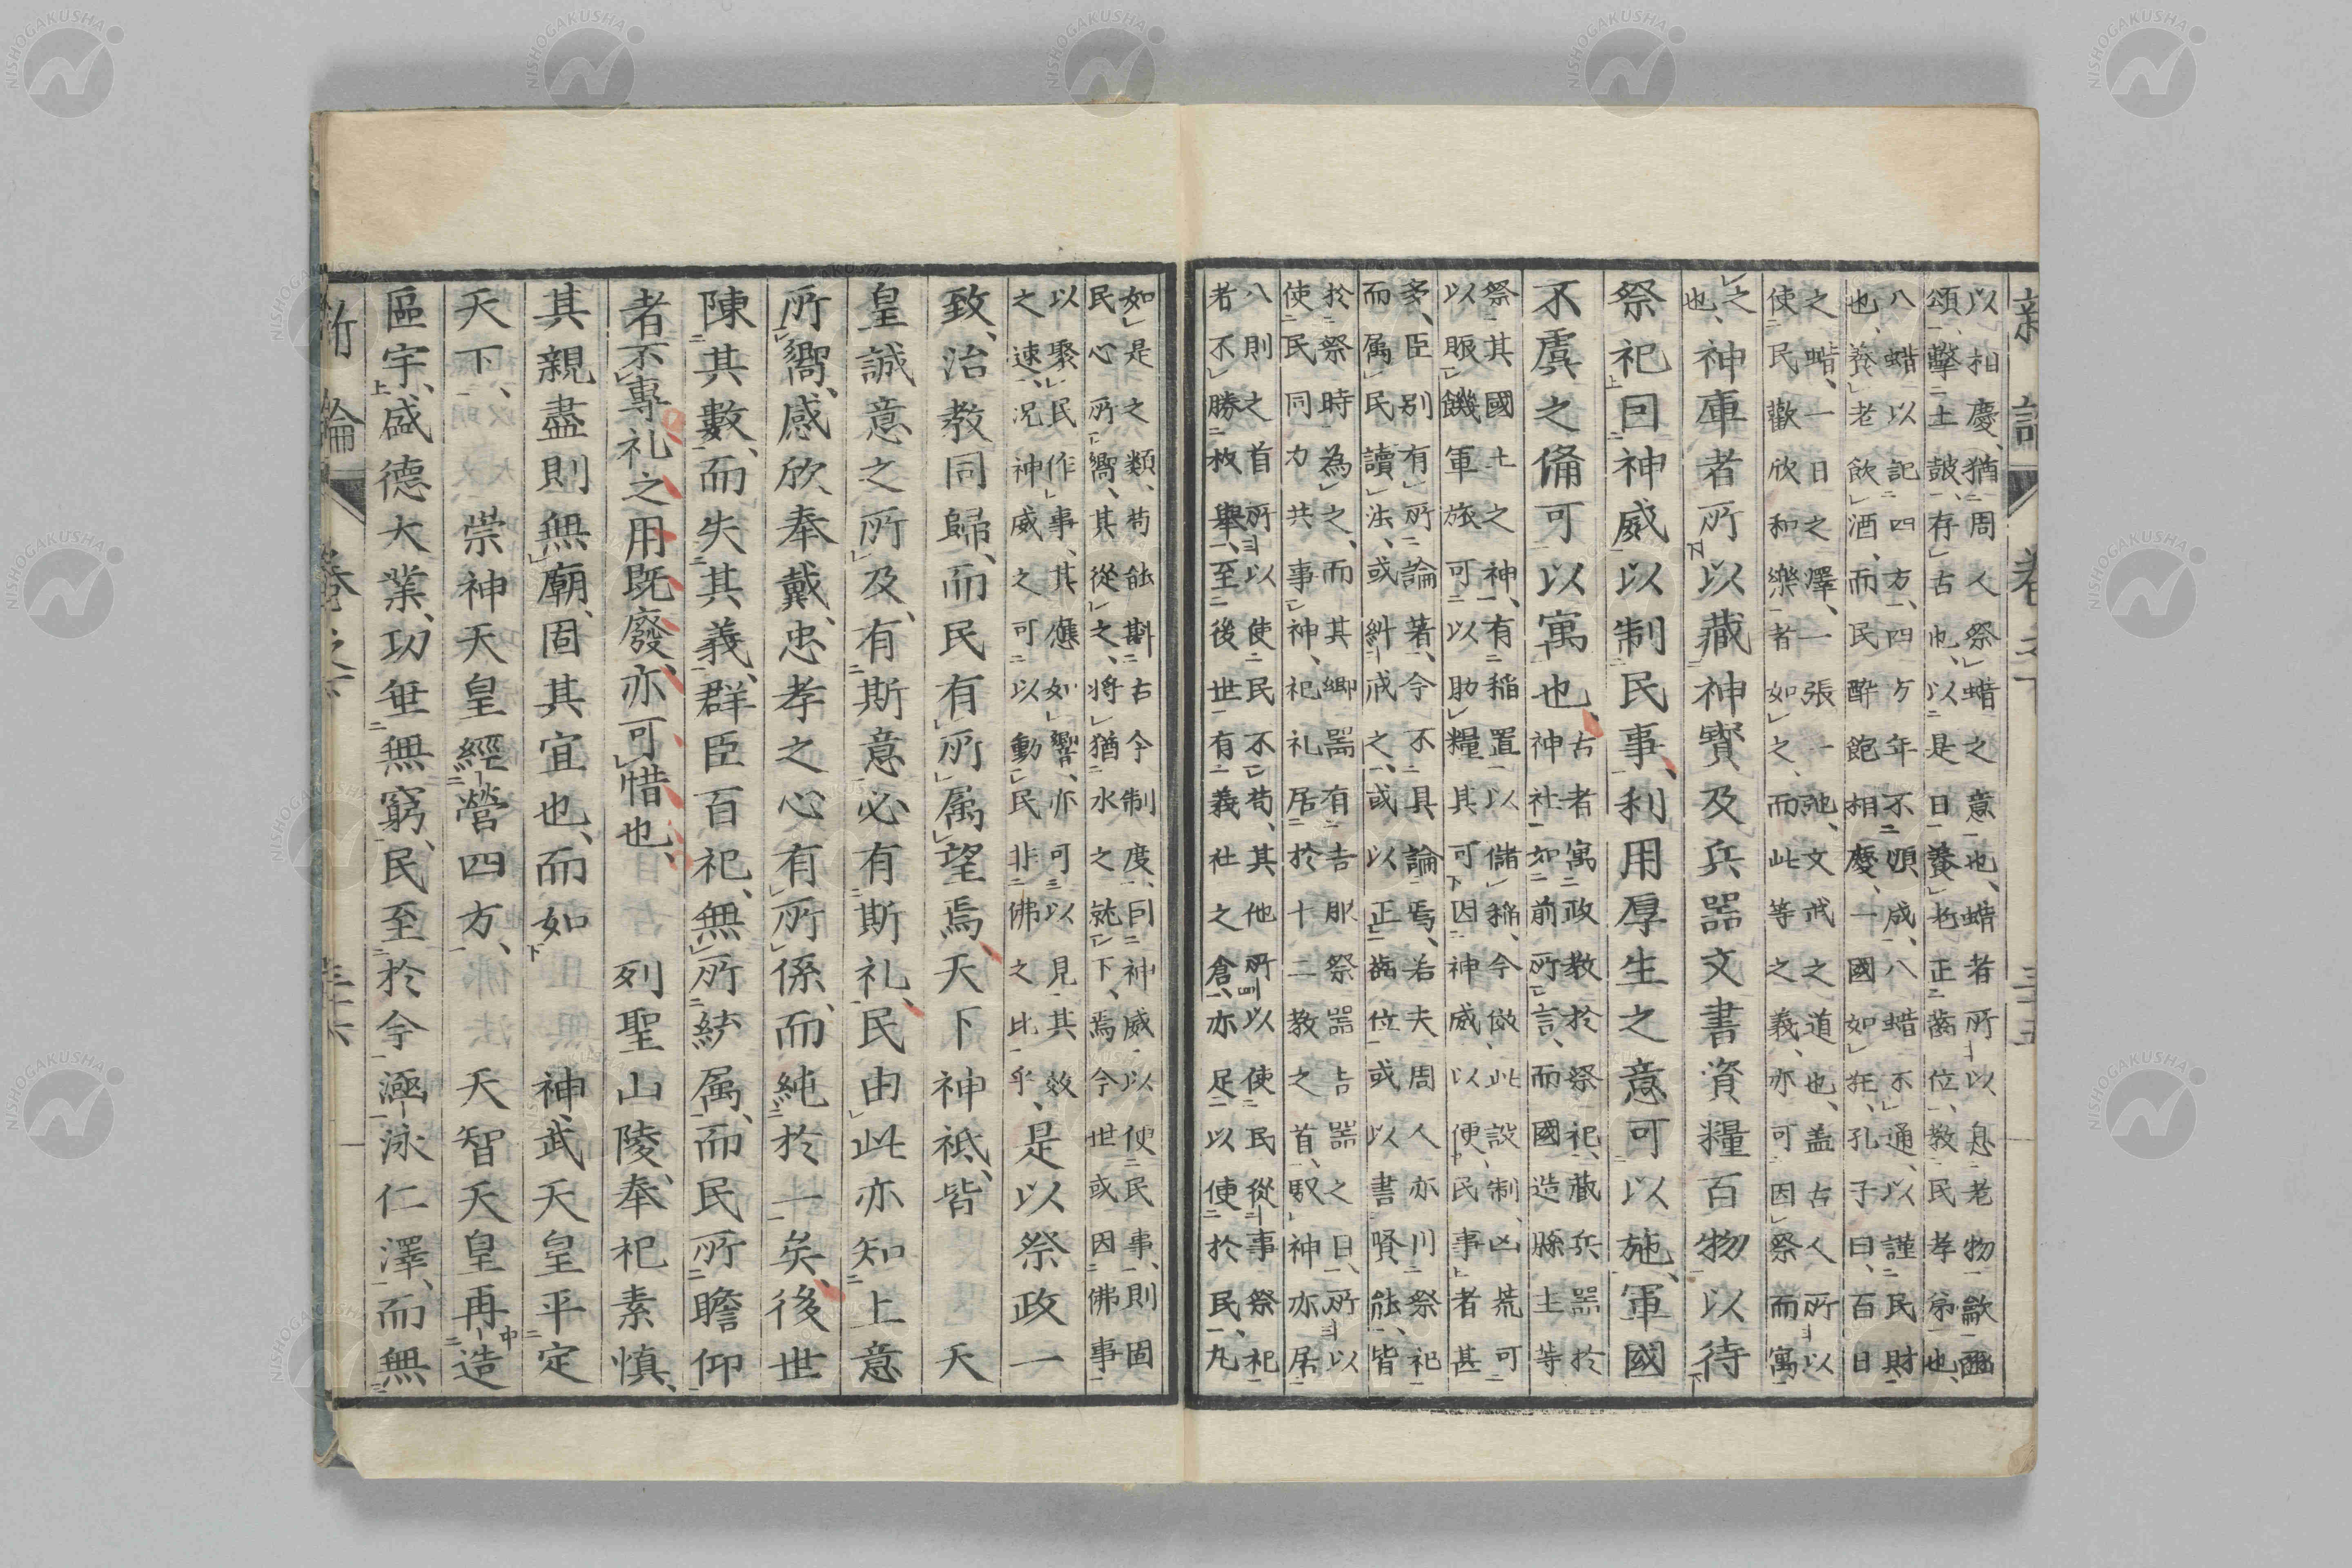 新論 卷之下 三十五
以相慶、猶周人祭蜡之意也、蜡者所以息老物、歙豳
頌、擊土鼓、存古也、以是日養老、正齒位、教民孝弟也、
八蜡以記四方、四方年不順成、八蜡不通、以謹民財
也、養老飲酒、而民酔飽相慶、一國如狂、孔子曰、百日
之蜡、一日之澤、一張一弛、文武之道也、盖古人所以
使民歡欣和樂者如之、而此等之義、亦可因祭而寓
之
也、神庫者所以藏神寳及兵器文書資糧百物以待
祭祀因神威以制民事、利用厚生之意可以施、軍國
不虞之備可以寓也、
古者寓政教於祭祀、藏兵器於
神社、如前所言、而國造縣主等
祭其國土之神、有稲置以儲稲、今倣此設制、凶荒可
以賑饑、軍旅可以助糧、其可因神威以便民事者甚
多、臣別有所論著、今不具論焉、若夫周人亦川祭祀
而属民讀法、或糾戒之、或以正齒位、或以書賢能、皆
於祭時為之、而其郷器有吉服祭器吉器之目、所以
使民同力共事神、祀礼居於十二教之首、馭神亦居
八則之首、所以使民不苟、其他所以使民從事祭祀
者不勝枚舉、至後世有義社之倉、亦足以使於民、九
如是之類、苟能斟古今制度、因神威以使民事、則固
民心所嚮、其從之、將猶水之就下、焉今世或因佛事
以聚民作事、其應如響、亦可以見其效
之速、况神威之可以動民非佛之比乎、
是以祭政一
致、治教同歸、而民有所属望焉、天下神祗、皆 天
皇誠意之所及、有斯意必有斯礼、民由此亦知上意
所嚮、感欣奉戴、忠孝之心有所係、而純於一矣、後世
陳其數、而失其義、群臣百祀、無所統属、而民所瞻仰
者不專、礼之用既廢、亦可惜也、 列聖山陵、奉祀素慎、
其親盡則無廟、固其宜也、而如 神武天皇平定
天下、 崇神天皇經營四方、 天智天皇再造
區宇、盛德大業、功垂無窮、民至於今涵泳仁澤、而無
新論 卷之下 三十六